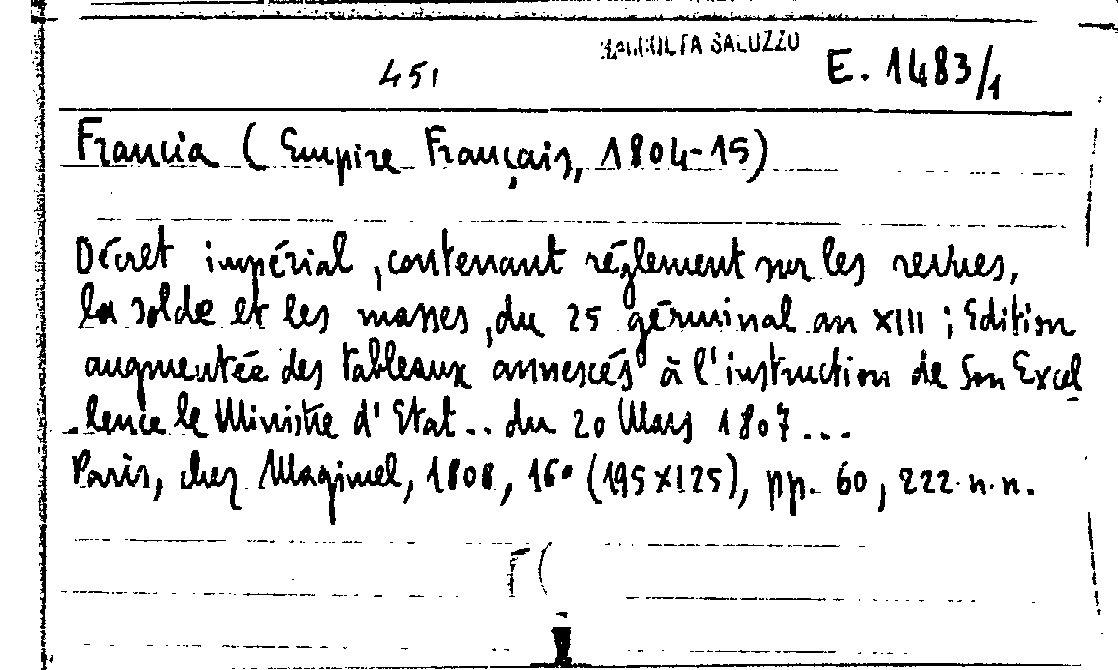 RACCOLTA SALUZZO
451 E. 1483/1
Francia (Empire Français, 1804-15)
Décret impérial, contenant réglement sur les revues,
la solde et les masses, du 25 gérminal an XIII; Edition
augmentée des tableaux annexés à l'instruction de Son Excel
lence le Ministre d'Etat.. du 20 Mars 1807...
Paris, chez Magimel, 1808, 16° (195x125), pp. 60, 222 n.n.